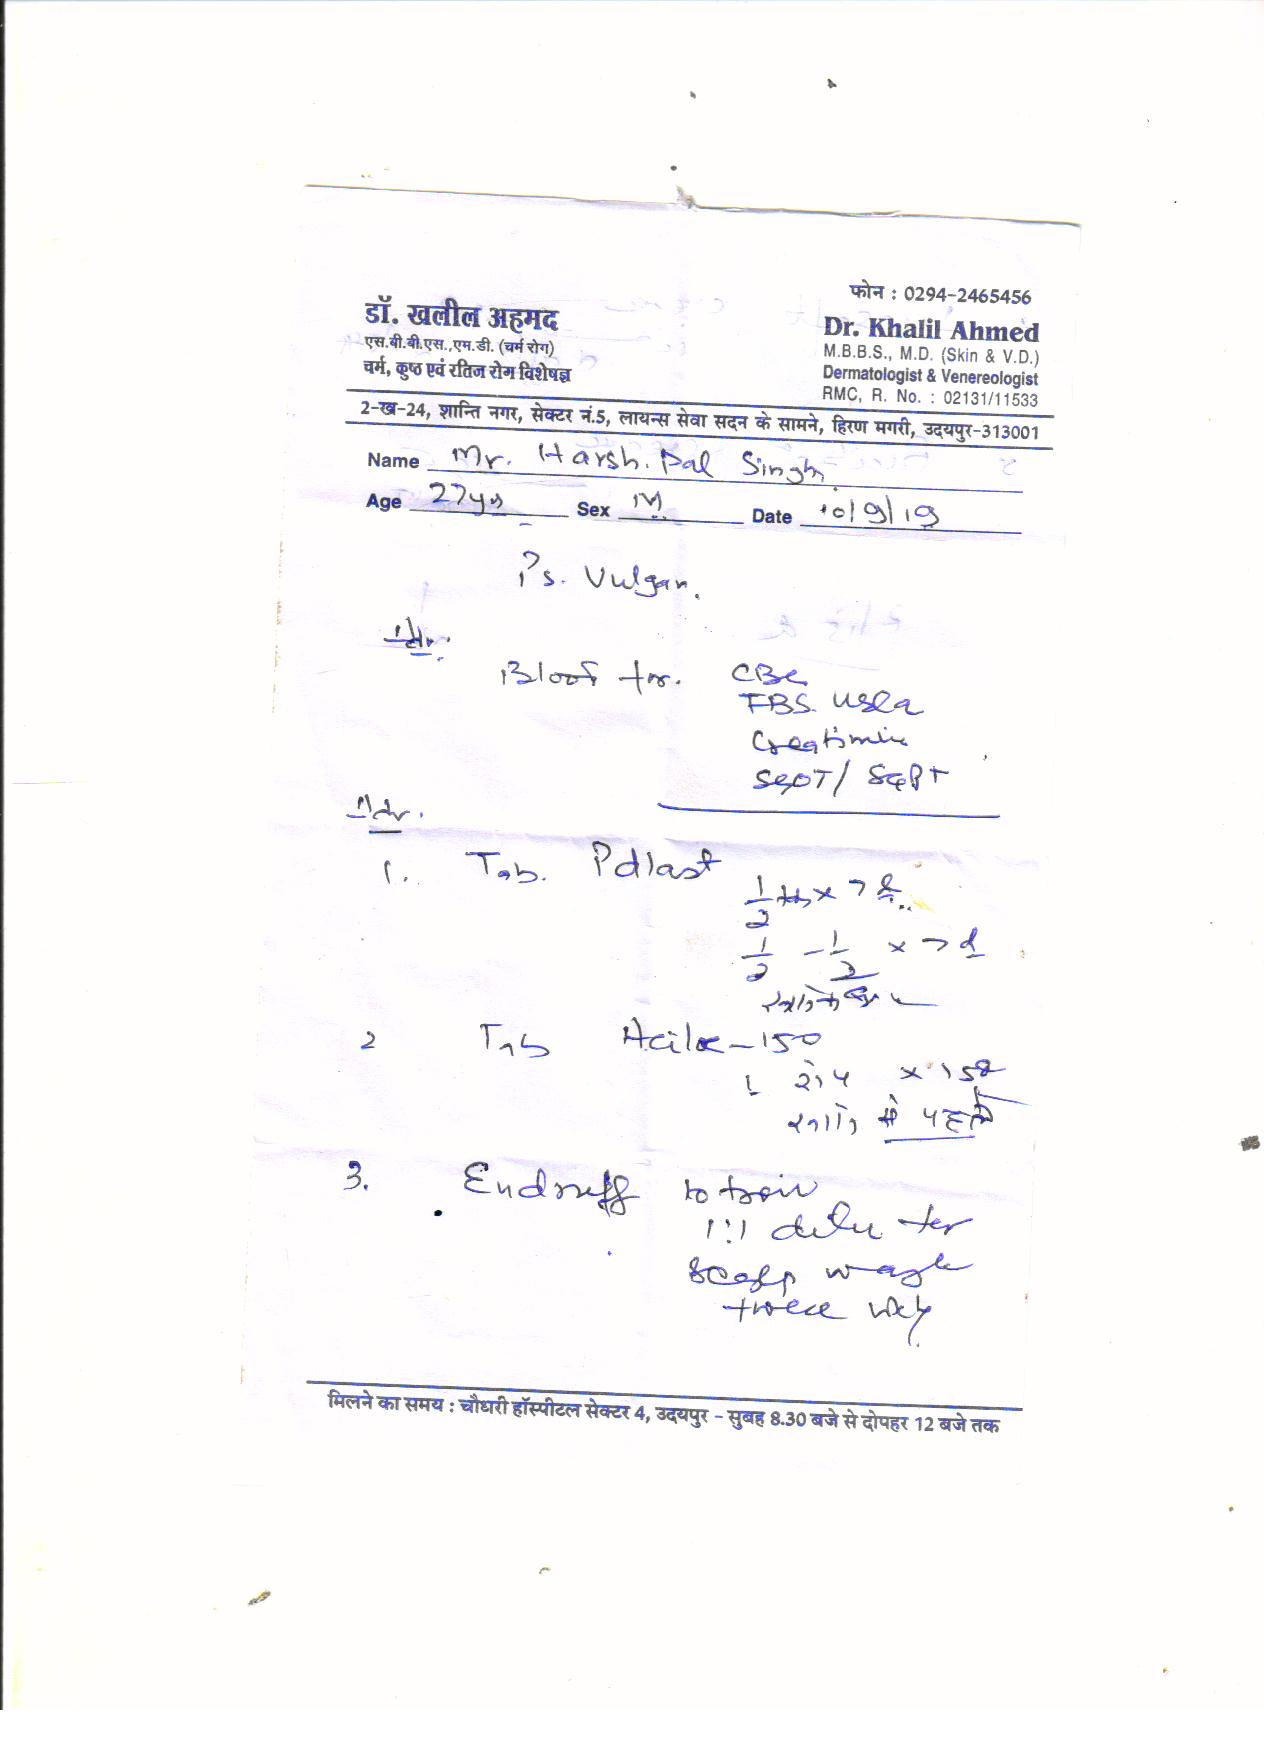 फोन : 0294-2465456
डॉ. खलील अहमद
एस.बी.बी.एस.,एम.डी. (चर्म रोग)
चर्म, कुष्ठ एवं रतिज रोग विशेषज्ञ
Dr. Khalil Ahmed
M.B.B.S., M.D. (Skin & V.D.)
Dermatologist & Venereologist
RMC, R. No. : 02131/11533
2-ख-24, शान्ति नगर, सेक्टर नं.5, लायन्स सेवा सदन के सामने, हिरण मगरी, उदयपुर-313001
Name Mr. Harsh. Pal Singh
Age 27yrs Sex M Date 10/9/19
Ps. Vulgar.
Adv.
Blood for. CBC
FBS. Urea
Creatinine
SGOT/ SGPT
Adv.
1. Tab. Pdlast
1/2 x 7
1/2 - 1/2 x 7
2 Tab -150
1 रोज x 15
से पहले
3. Endruff lotion
1:1 dilu for
scalp wash
twice wkly
मिलने का समय : चौधरी हॉस्पीटल सेक्टर 4, उदयपुर - सुबह 8.30 बजे से दोपहर 12 बजे तक